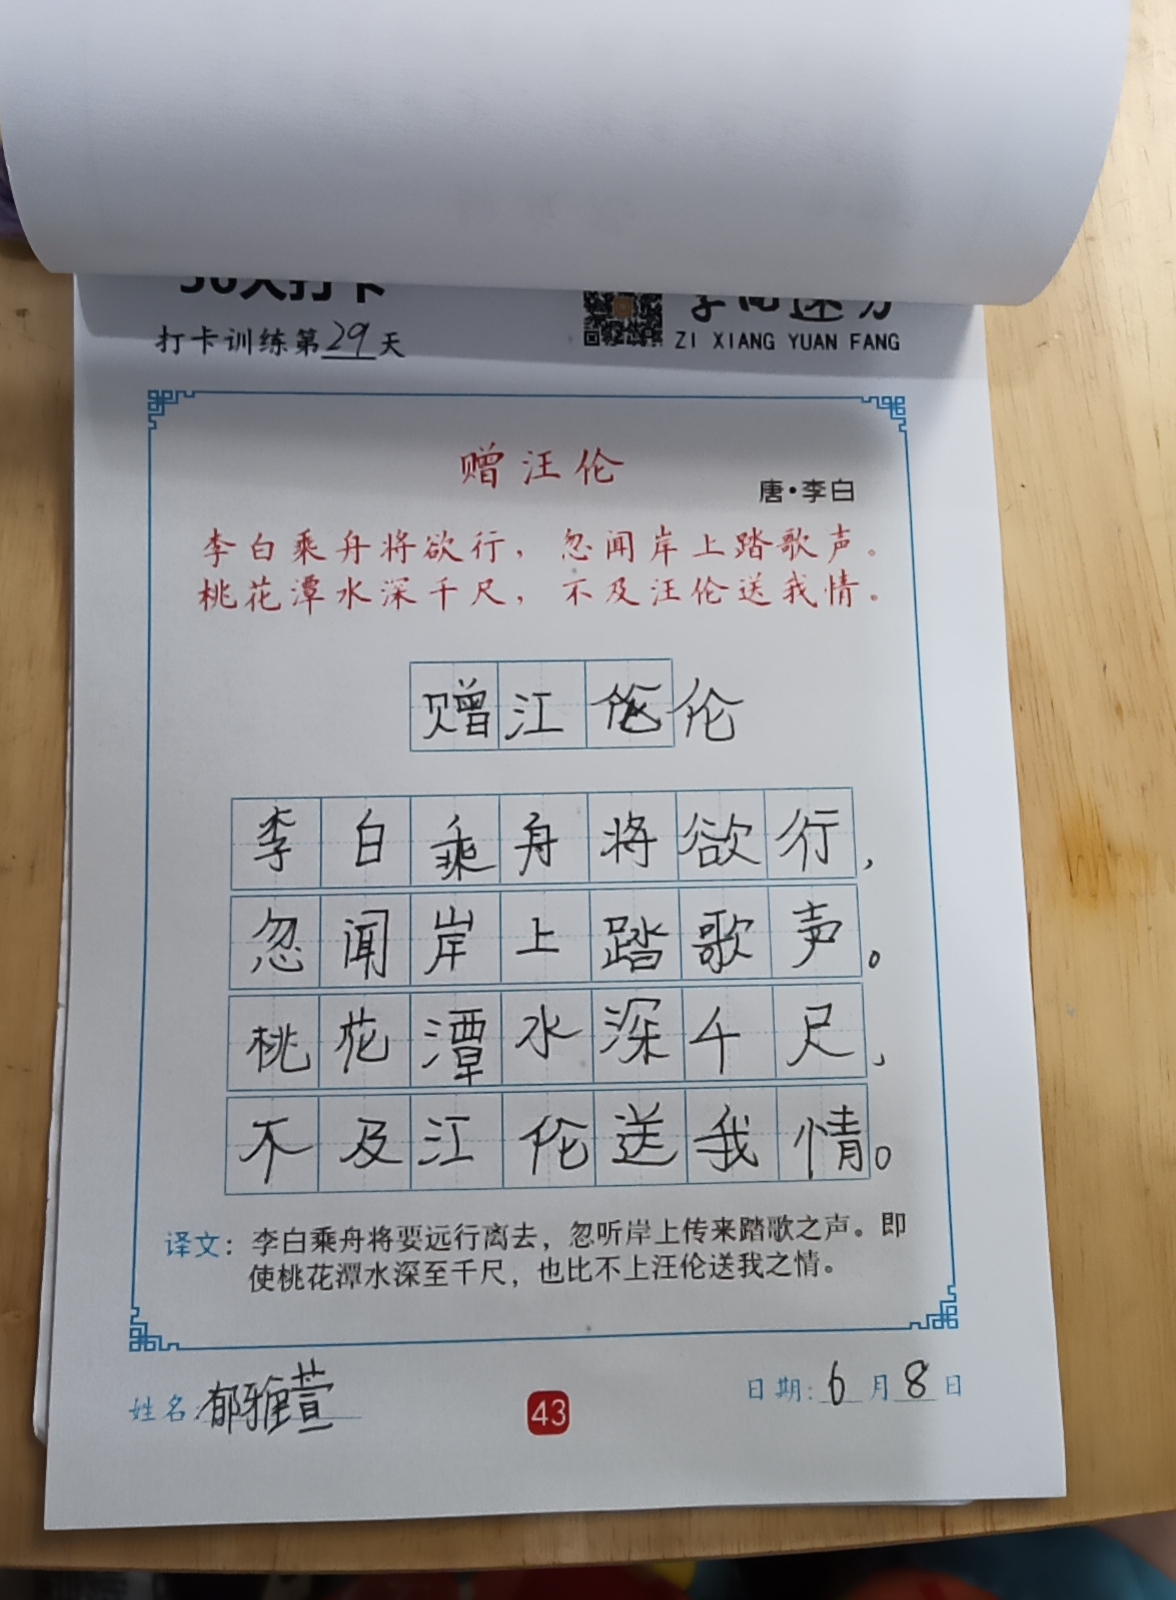 打卡训练第29天
ZI XIANG YUAN FANG
赠汪伦
唐·李白
李白乘舟将欲行，忽闻岸上踏歌声。
桃花潭水深千尺，不及汪伦送我情。
赠江伦
李白乘舟将欲行，
忽闻岸上踏歌声。
桃花潭水深千尺，
不及江伦送我情。
译文：李白乘舟将要远行离去，忽听岸上传来踏歌之声。即
使桃花潭水深至千尺，也比不上汪伦送我之情。
姓名：郁雅萱
43
日期：6月8日